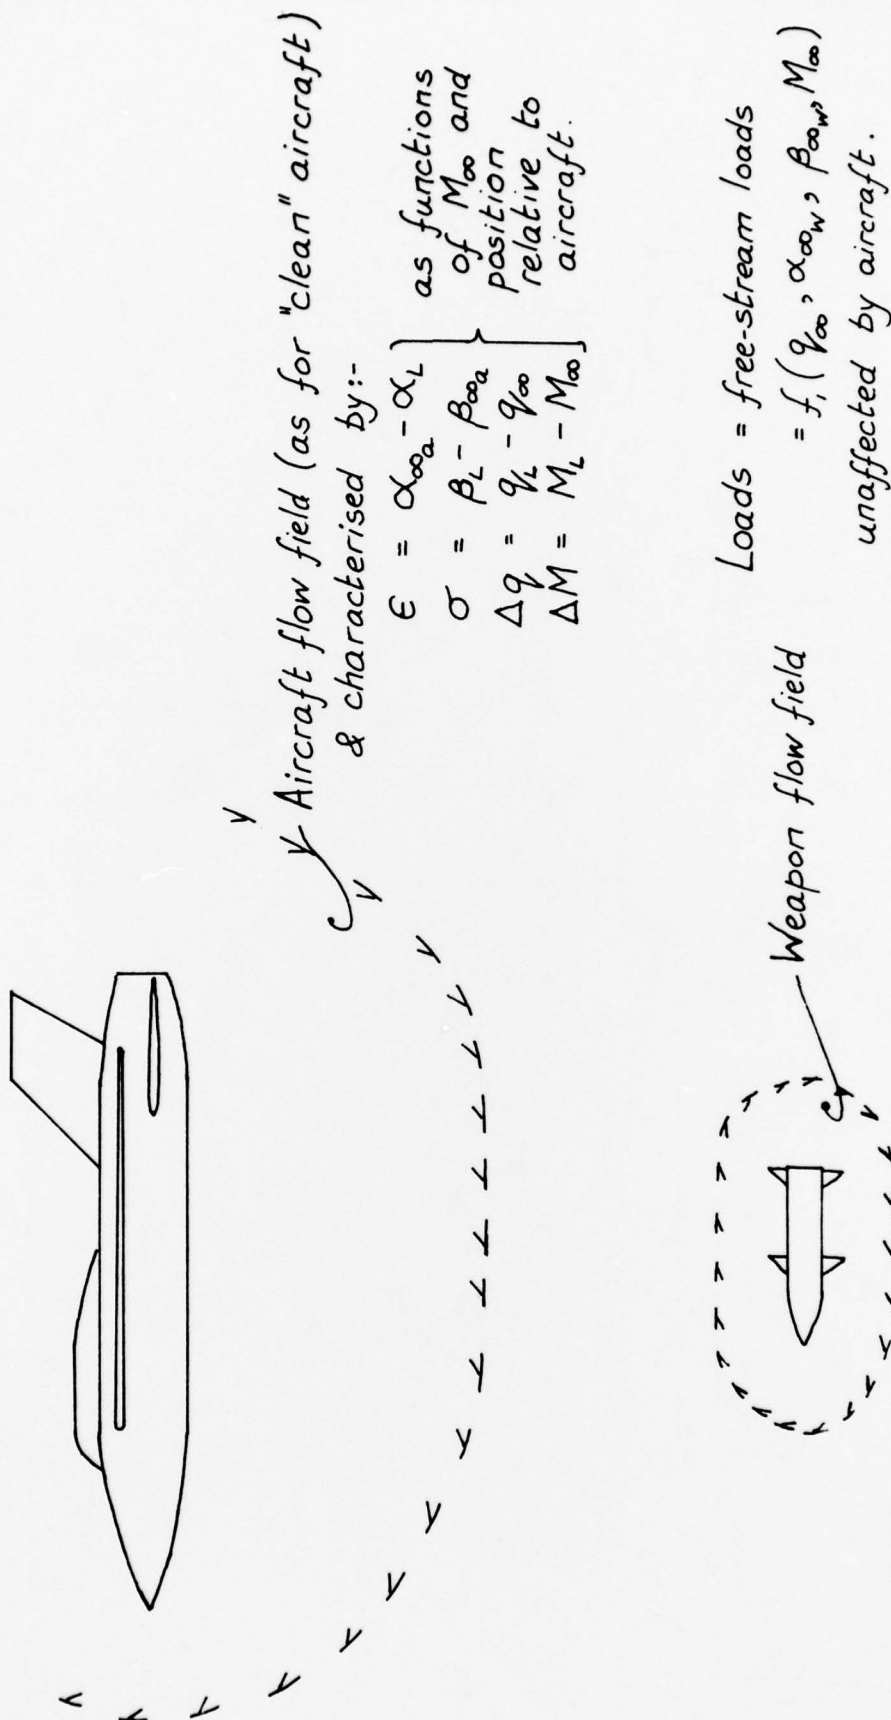 Aircraft flow field (as for "clean" aircraft)
& characterised by:-
ϵ = α∞a − αL
σ = βL − β∞a
Δq = qL − q∞
ΔM = ML − M∞
as functions
of M∞ and
position
relative to
aircraft.
Weapon flow field
Loads = free-stream loads
= f₁(q∞, α∞w, β∞w, M∞)
unaffected by aircraft.